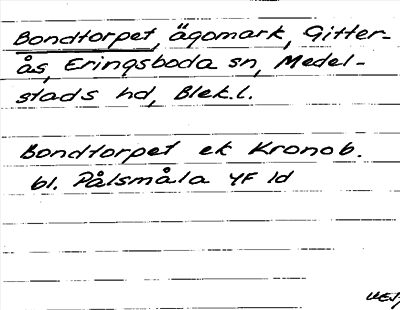 Bondtorpet, ägomark, Gitter-
ås, Eringsboda sn, Medel-
stads hd, Blek.l.
Bondtorpet ek Kronob.
bl. Pålsmåla YF 1d